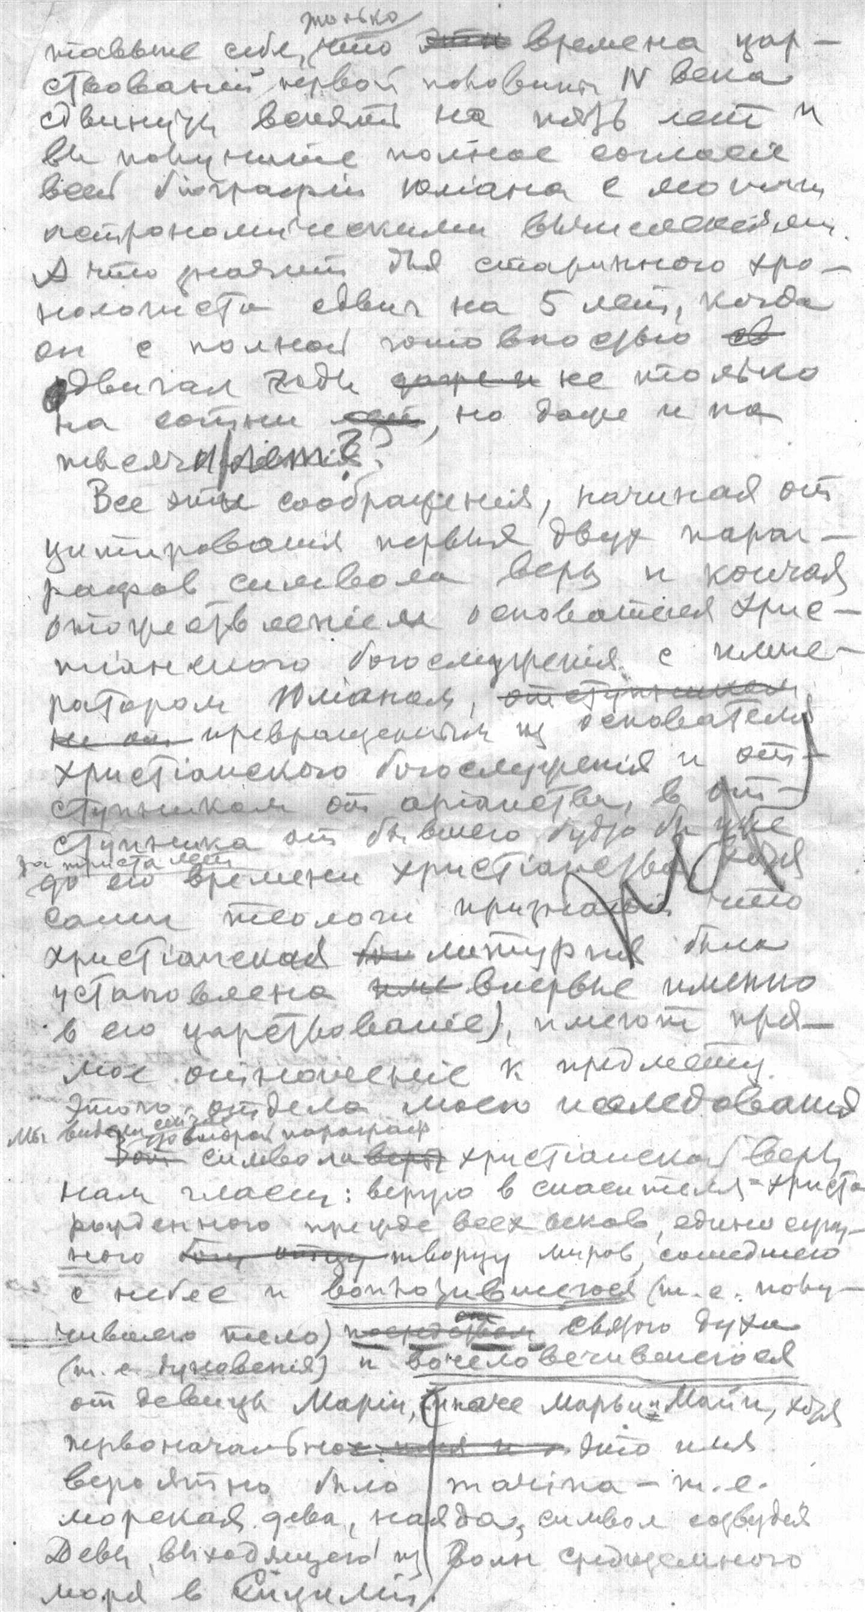 только
ставьте себе, что эти времена цар-
ствований первой половины IV века
сдвинуты на пять лет и
вы получите полное согласіе
всей біографіи Юліана с моими
астрономическими вычисленіями.
А что значит для старинного хро-
нологиста сдвиг на 5 лет, когда
он с полной готовностью
сдвигал годы не только
на сотни лет, но даже и на
тысячи лет?
Все эти соображенія, начиная от
цитированія первыя двух параг-
рафов символа веры и кончая
отожествленіем основателя хрис-
тіанского богослуженія с импе-
ратором Юліаном, отступником
не он превращенным из основателя
христіанского богослуженія и от-
ступником от аріанства, в от-
ступника от бывшего будто бы уже
за триста лет
до его времени христіанства, хотя
сами теологи признают что
христіанская бог литургия была
установлена име впервые именно
в его царствованіе), имеют пря-
мое отношеніе к предмету
этого отдела моего исследования
Мы видели сейчас что второй параграф
Вот символа веры христіанской веры
нам гласил: верую в спасителя-Христа
рожденного прежде всех веков, единосущ-
ного богу отцу творцу миров, сошедшего
с небес и воплотившегося (т.е. полу-
чившего тело) посредством от святого духа
(т.е. дуновенія) и вочеловечившегося
от девицы Маріи, (иначе Марьи-Майи, хотя
первоначально это имя
вероятно было марина – т.е.
морская дева, наяда, символ созвездія
Девы, выходящего из волн средиземного
моря в Сициліи.